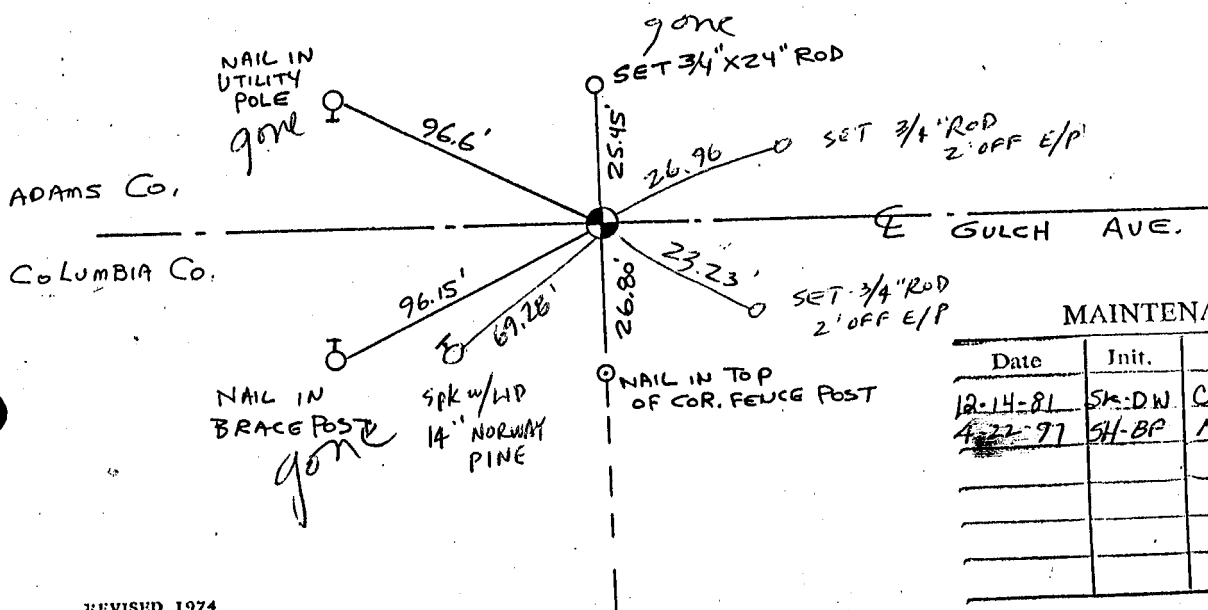 gone
SET 3/4"X24" ROD
NAIL IN
UTILITY
POLE
gone
96.6'
25.45'
26.96
SET 3/4"ROD
2' OFF E/P
ADAMS CO.
COLUMBIA CO.
℄ GULCH AVE.
96.15'
69.28'
26.80'
23.23'
SET 3/4"ROD
2' OFF E/P
NAIL IN
BRACE POST
gone
SPK W/WD
14" NORWAY
PINE
NAIL IN TOP
OF COR. FENCE POST
MAINTENA
Date Init.
12-14-81 SK-DW C
4-22-97 SH-BF
REVISED 1974